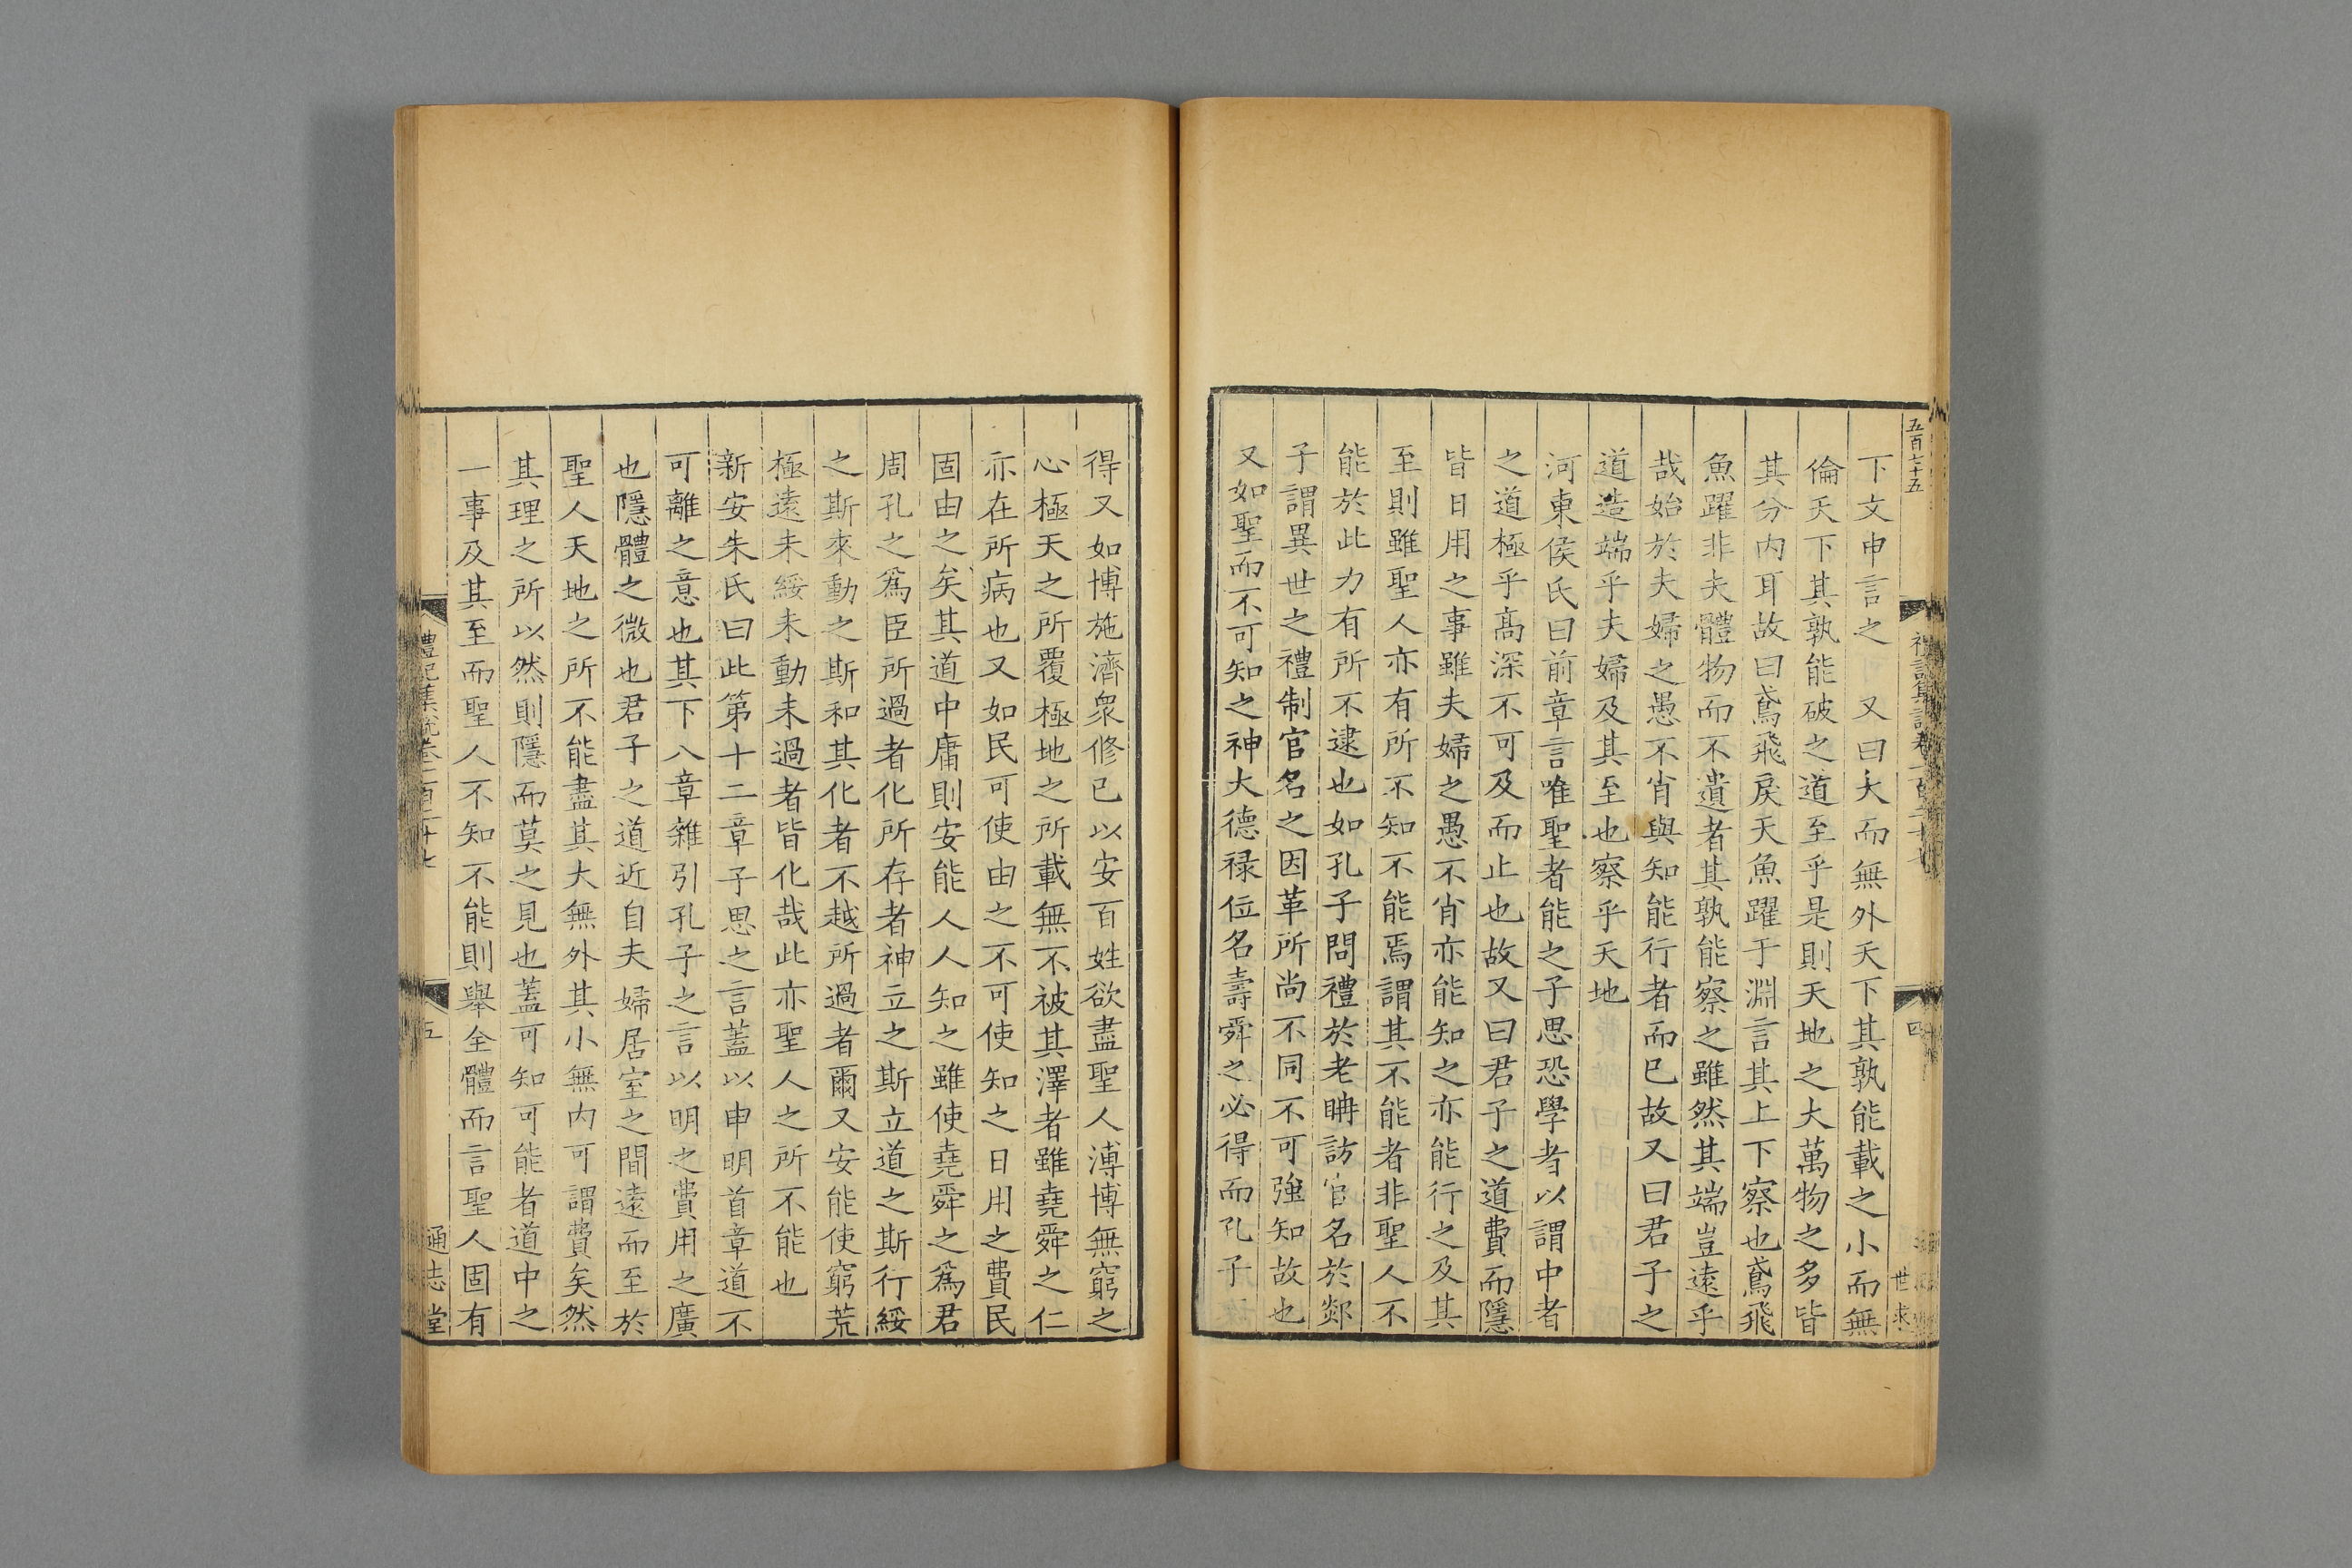 五百七十五
四
世求
下文申言之 又曰大而無外天下其孰能載之小而無
倫天下其孰能破之道至乎是則天地之大萬物之多皆
其分内耳故曰鳶飛戾天魚躍于淵言其上下察也鳶飛
魚躍非夫體物而不遺者其孰能察之雖然其端豈遠乎
哉始於夫婦之愚不肖與知能行者而已故又曰君子之
道造端乎夫婦及其至也察乎天地
河東侯氏曰前章言唯聖者能之子思恐學者以謂中者
之道極乎髙深不可及而止也故又曰君子之道費而隱
皆日用之事雖夫婦之愚不肖亦能知之亦能行之及其
至則雖聖人亦有所不知不能焉謂其不能者非聖人不
能於此力有所不逮也如孔子問禮於老聃訪官名於郯
子謂異世之禮制官名之因革所尚不同不可強知故也
又如聖而不可知之神大德禄位名壽舜之必得而孔子
得又如博施濟衆修已以安百姓欲盡聖人溥博無窮之
心極天之所覆極地之所載無不被其澤者雖堯舜之仁
亦在所病也又如民可使由之不可使知之日用之費民
固由之矣其道中庸則安能人人知之雖使堯舜之爲君
周孔之爲臣所過者化所存者神立之斯立道之斯行綏
之斯來動之斯和其化者不越所過者爾又安能使窮荒
極遠未綏未動未過者皆化哉此亦聖人之所不能也
新安朱氏曰此第十二章子思之言蓋以申明首章道不
可離之意也其下八章雜引孔子之言以明之費用之廣
也隱體之微也君子之道近自夫婦居室之間遠而至於
聖人天地之所不能盡其大無外其小無内可謂費矣然
其理之所以然則隱而莫之見也蓋可知可能者道中之
一事及其至而聖人不知不能則舉全體而言聖人固有
禮記集說卷一百二十七
五
通志堂